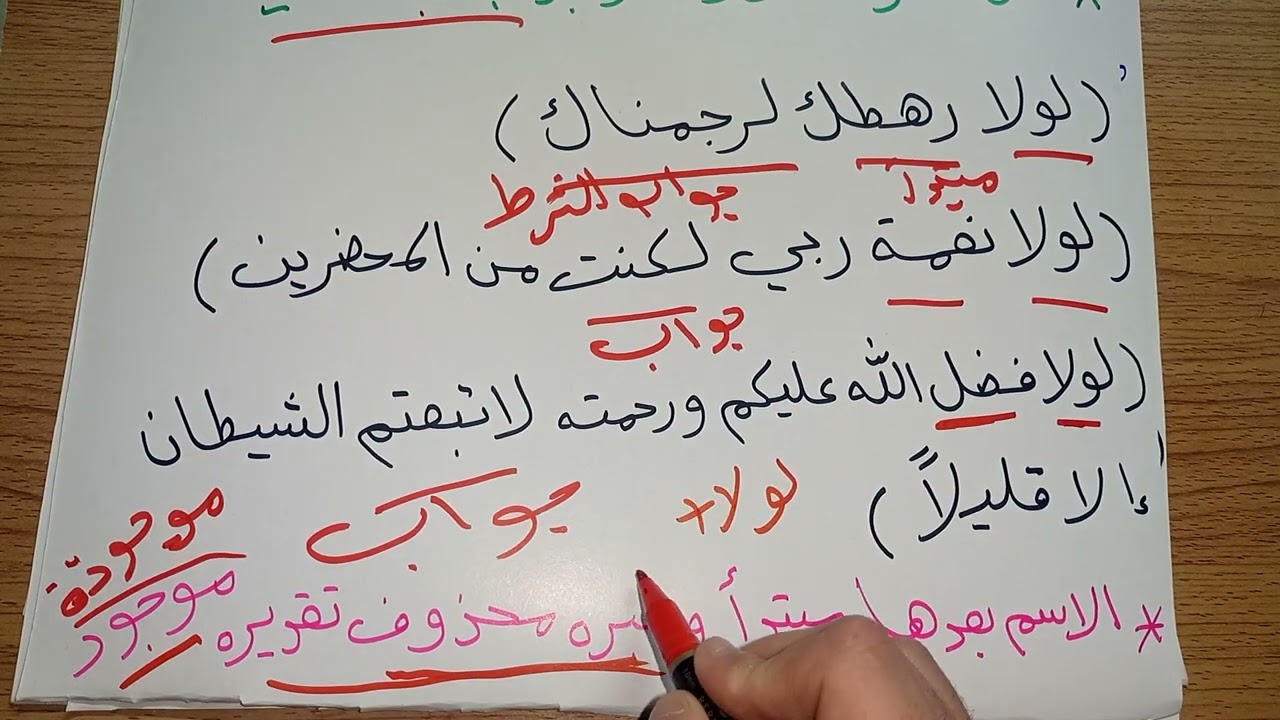 (لولا رهطك لرجمناك)
مبتدأ جواب الشرط
(لولا نعمة ربي لكنت من المحضرين)
جواب
(لولا فضل الله عليكم ورحمته لاتبعتم الشيطان
إلا قليلاً)
لولا+ جواب
موجودة
* الاسم بعدها مبتدأ وخبره محذوف تقديره موجود